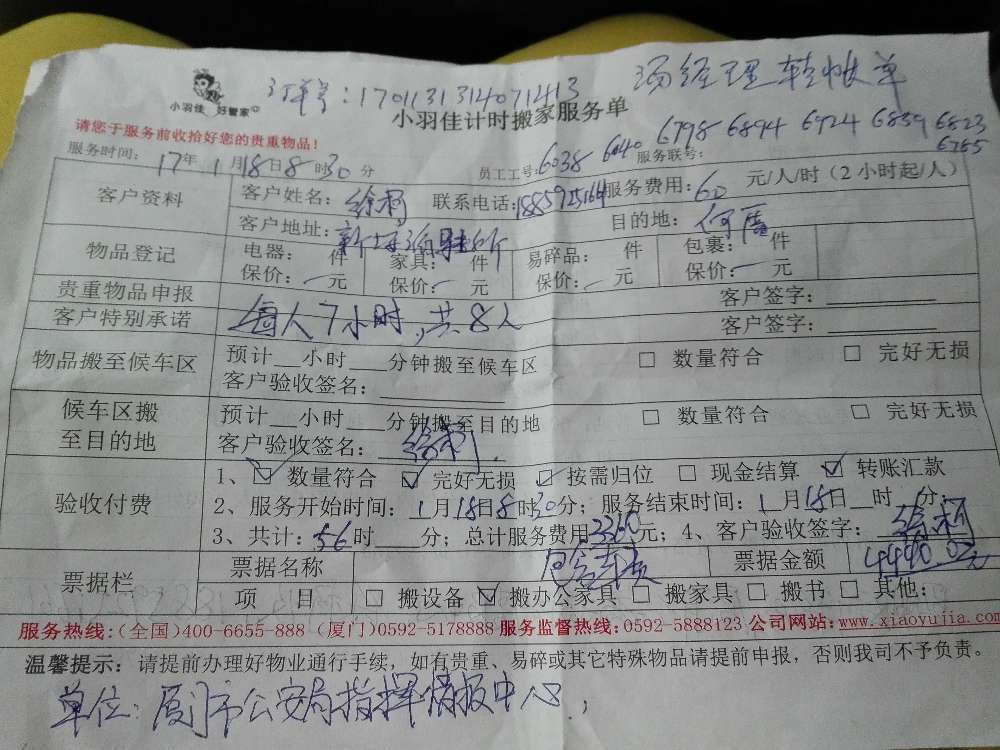 小羽佳 好管家
订单号：1701131314071413
汤经理转帐单
小羽佳计时搬家服务单
请您于服务前收拾好您的贵重物品！
服务时间：17年1月18日8时30分 员工工号：6038 6040 服务联号： 6798 6894 6924 6859 6823
6765
客户资料 客户姓名：徐柯 联系电话： 服务费用：60元/人/时（2小时起/人）
客户地址： 目的地：何厝
物品登记 电器： 件 家具： 件 易碎品： 件 包裹： 件
保价： 元 保价： 元 保价： 元 保价： 元
贵重物品申报 客户签字：
客户特别承诺 每人7小时，共8人 客户签字：
物品搬至候车区 预计__小时___分钟搬至候车区 □ 数量符合 □ 完好无损
客户验收签名：
候车区搬至目的地 预计__小时___分钟搬至目的地 □ 数量符合 □ 完好无损
客户验收签名：徐柯
验收付费 1、☑ 数量符合 ☑ 完好无损 ☑ 按需归位 □ 现金结算 ☑ 转账汇款
2、服务开始时间：1月18日8时30分；服务结束时间：1月18日__时__分；
3、共计：56时___分；总计服务费用3360元；4、客户验收签字：徐柯
票据栏 票据名称 包含车费 票据金额 4490.00元
项 目 □ 搬设备 ☑ 搬办公家具 □ 搬家具 □ 搬书 □ 其他：
服务热线：(全国)400-6655-888 (厦门)0592-5178888 服务监督热线：0592-5888123 公司网站：www.xiaoyujia.com
温馨提示：请提前办理好物业通行手续，如有贵重、易碎或其它特殊物品请提前申报，否则我司不予负责。
单位：厦门市公安局指挥情报中心；